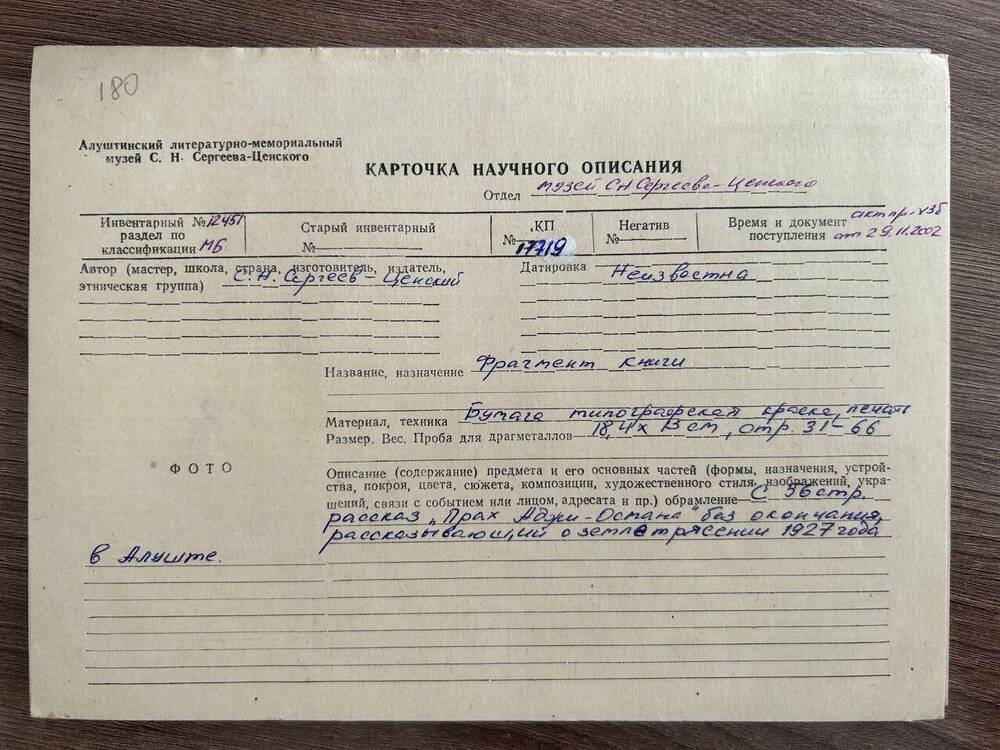 180
Алуштинский литературно-мемориальный
музей С. Н. Сергеева-Ценского
КАРТОЧКА НАУЧНОГО ОПИСАНИЯ
Отдел музей СН Сергеева-Ценского
Инвентарный № 12451
раздел по
классификации МБ
Старый инвентарный
№
КП
№ 17719
Негатив
№
Время и документ
поступления
акт пр-
от 29.11.2002
Автор (мастер, школа, страна, изготовитель, издатель,
этническая группа) С.Н. Сергеев-Ценский
Датировка Неизвестна
Название, назначение Фрагмент книги
Материал, техника Бумага типографская краска, печать
Размер. Вес. Проба для драгметаллов 18,4х13 см, стр. 31-66
ФОТО
Описание (содержание) предмета и его основных частей (формы, назначения, устрой-
ства, покроя, цвета, сюжета, композиции, художественного стиля, изображений, укра-
шений, связи с событием или лицом, адресата и пр.) обрамление С 56 стр.
рассказ „Прах Аджи-Османа" без окончания,
рассказывающий о землетрясении 1927 года
в Алуште.